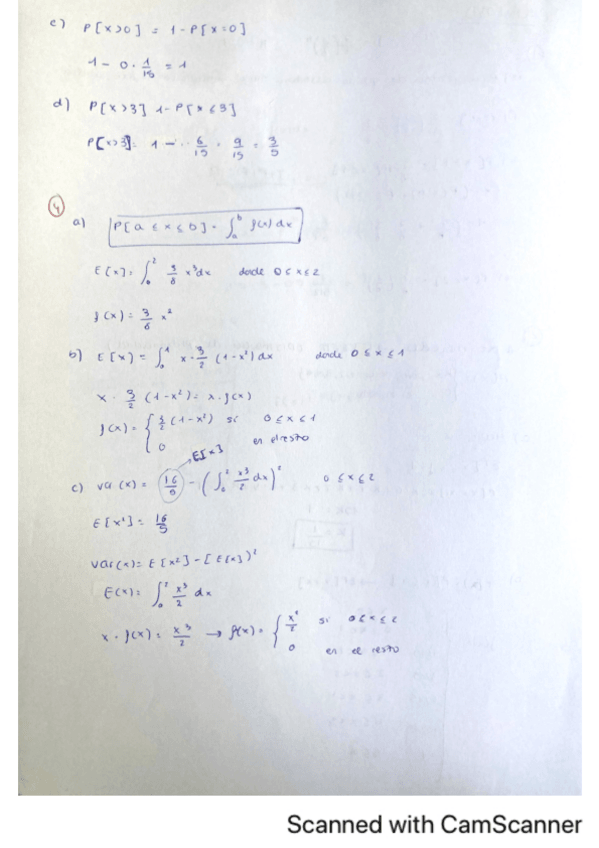 c) P[x>0] = 1-P[x=0]
1 - 0 · 1/15 = 1
d) P[x>3] 1-P[x≤3]
P[x>3] = 1 - 6/15 = 9/15 = 3/5
4
a) P[a ≤ x ≤ b] = ∫_a^b f(x) dx
E[x] = ∫_0^2 3/8 x³dx donde 0≤x≤2
f(x) = 3/8 x²
b) E[x] = ∫_0^1 x · 3/2 (1-x²) dx donde 0 ≤ x ≤ 1
x · 3/2 (1-x²) = x · f(x)
f(x) = { 3/2 (1-x²) si 0≤x≤1
0 en el resto
E[x²]
c) var (x) = 16/5 - (∫_0^2 x³/2 dx)² 0≤x≤2
E[x²] = 16/5
var(x) = E[x²] - [E[x]]²
E(x) = ∫_0^2 x³/2 dx
x · f(x) = x³/2 → f(x) = { x²/2 si 0≤x≤2
0 en el resto
Scanned with CamScanner